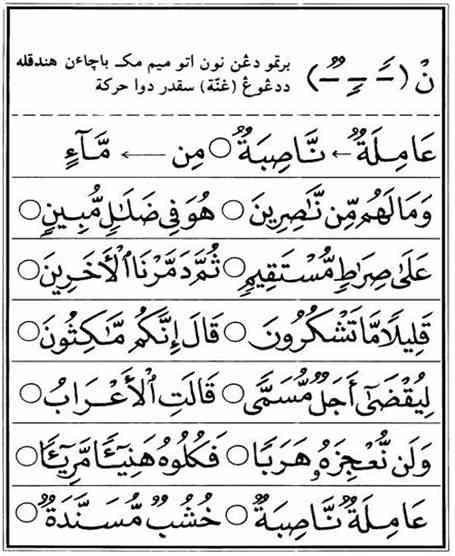 نْ (ـًـ ـٍـ ـٌـ) برتمو دڠن نون اتو ميم مک باچاءن هندقله
ددڠوڠ (غنّة) سقدر دوا حركة
عَامِلَةٌ ← نَّاصِبَةٌ ○ مِن ← مَّآءٍ
وَمَا لَهُم مِّن نَّـٰصِرِينَ ○ هُوَ فِي ضَلَـٰلٍ مُّبِينٍ ○
عَلَىٰ صِرَٰطٍ مُّسْتَقِيمٍ ○ ثُمَّ دَمَّرْنَا ٱلْأَخَرِينَ ○
قَلِيلًا مَّا تَشْكُرُونَ ○ قَالَ إِنَّكُم مَّـٰكِثُونَ ○
لِيُقْضَىٰٓ أَجَلٌ مُّسَمًّى ○ قَالَتِ ٱلْأَعْرَابُ ○
وَلَن نُّعْجِزَهُۥ هَرَبًا ○ فَكُلُوهُ هَنِيٓـًٔا مَّرِيٓـًٔا ○
عَامِلَةٌ نَّاصِبَةٌ ○ خُشُبٌ مُّسَنَّدَةٌ ○